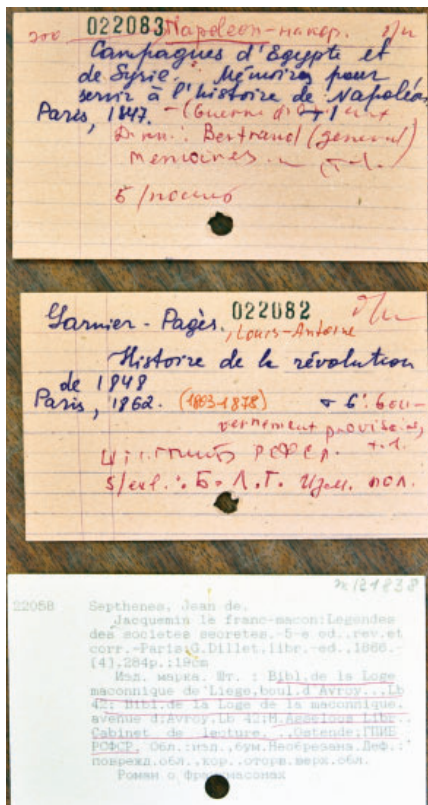 022083 Napoleon-импер.
Campagnes d'Egypte et
de Syrie. Mémoires pour
servir à l'histoire de Napoléon
Paris, 1847. - (Guerre d'
Bertrand (general)
Memoires.
022082
Garnier-Pagès, Louis-Antoine
Histoire de la révolution
de 1848
Paris, 1862. (1803-1878) + 6: Gou-
vernement provisoire,
t.1.
РСФСР.
S/exl.: Б. Л. Г. Изм. пол.
№121838
22058 Septhenes, Jean de.
Jacquemin le franc-macon:Legendes
des societes secretes.-5-e ed.,rev.et
corr.-Paris:G.Dillet.libr.-ed.,1866.-
[4].284p.;19cm
Изд. марка. Шт. : Bibl.de la Loge
maconnique de Liege,boul.d'Avroy...Lb
42; Bibl.de la Loge de la maconnique.
avenue d'Avroy.Lb 42;
Cabinet de lecture... ,Ostende;ГПИБ
РСФСР. Обл.:изд.,бум.Необрезана.Деф.:
поврежд.обл.,кор..оторв.верх.обл.
Роман о франмасонах